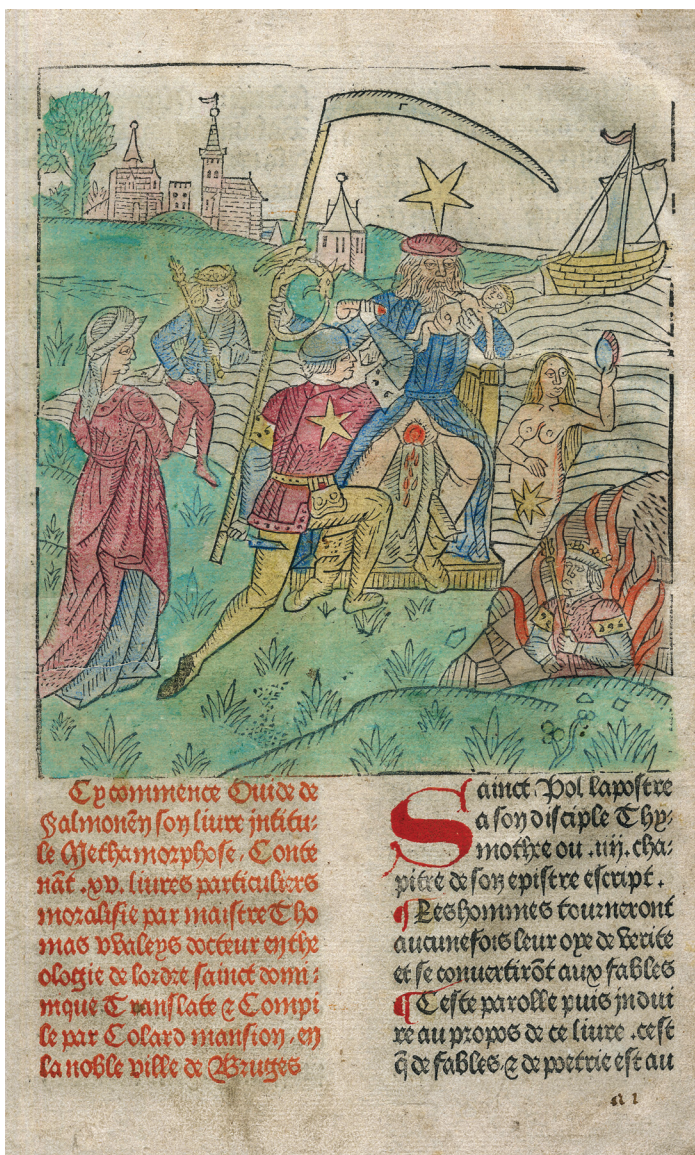 Cy commence Ouide de
Salmonēn son liure intitu-
le Methamorphose. Conte
nāt .xv. liures particuliers
moralisie par maistre Tho
mas vvaleys docteur en the
ologie de lordre sainct domi:
nique Translate & Compi
le par Colard mansion . en
la noble ville de Bruges
Sainct Pol lapostre
a son disciple Thy-
mothee ou .iiij. cha-
pitre de son epistre escript .
¶ Les hommes tourneront
aucunefois leur oye de verite
et se conuertirōt aux fables
¶ Ceste parolle puis indui
re au propos de ce liure . cest
q̄ de fables & de poetrie est au
a 1